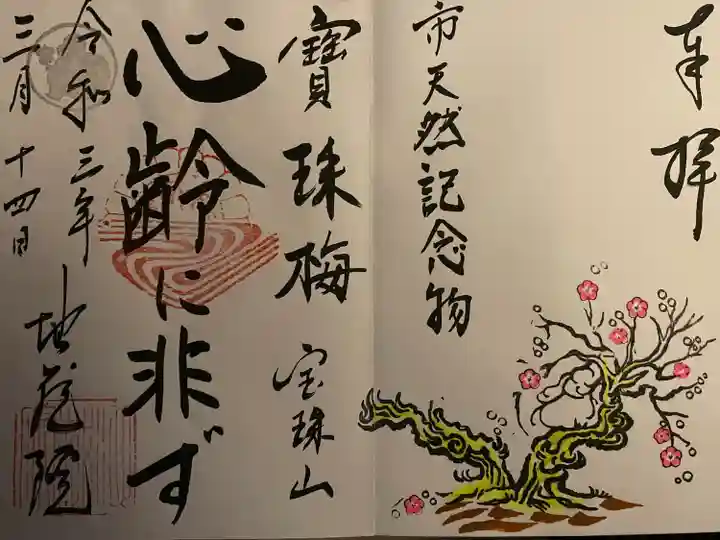 奉拝
市天然記念物
寳珠梅 宝珠山
心齢に非ず
令和三年 地蔵院
三月十四日